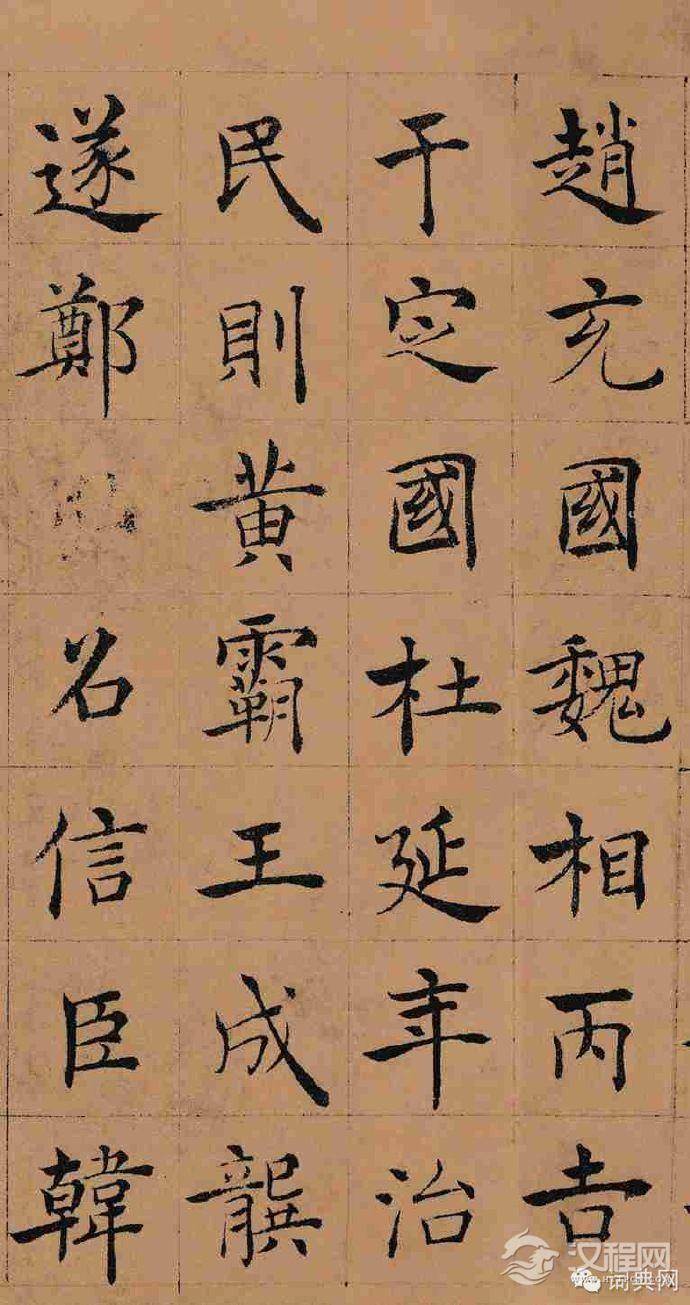 趙充國魏相丙吉
于定國杜延年治
民則黃霸王成龔
遂鄭召信臣韓
汉程网
词典网